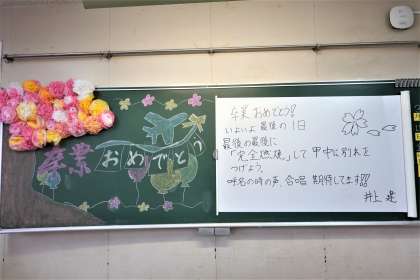 卒業
おめでとう
卒業おめでとう!!
いよいよ最後の1日
最後の最後に
「完全燃焼」して甲中に別れを
つげよう。
呼名の時の声、合唱 期待してます!!
井上